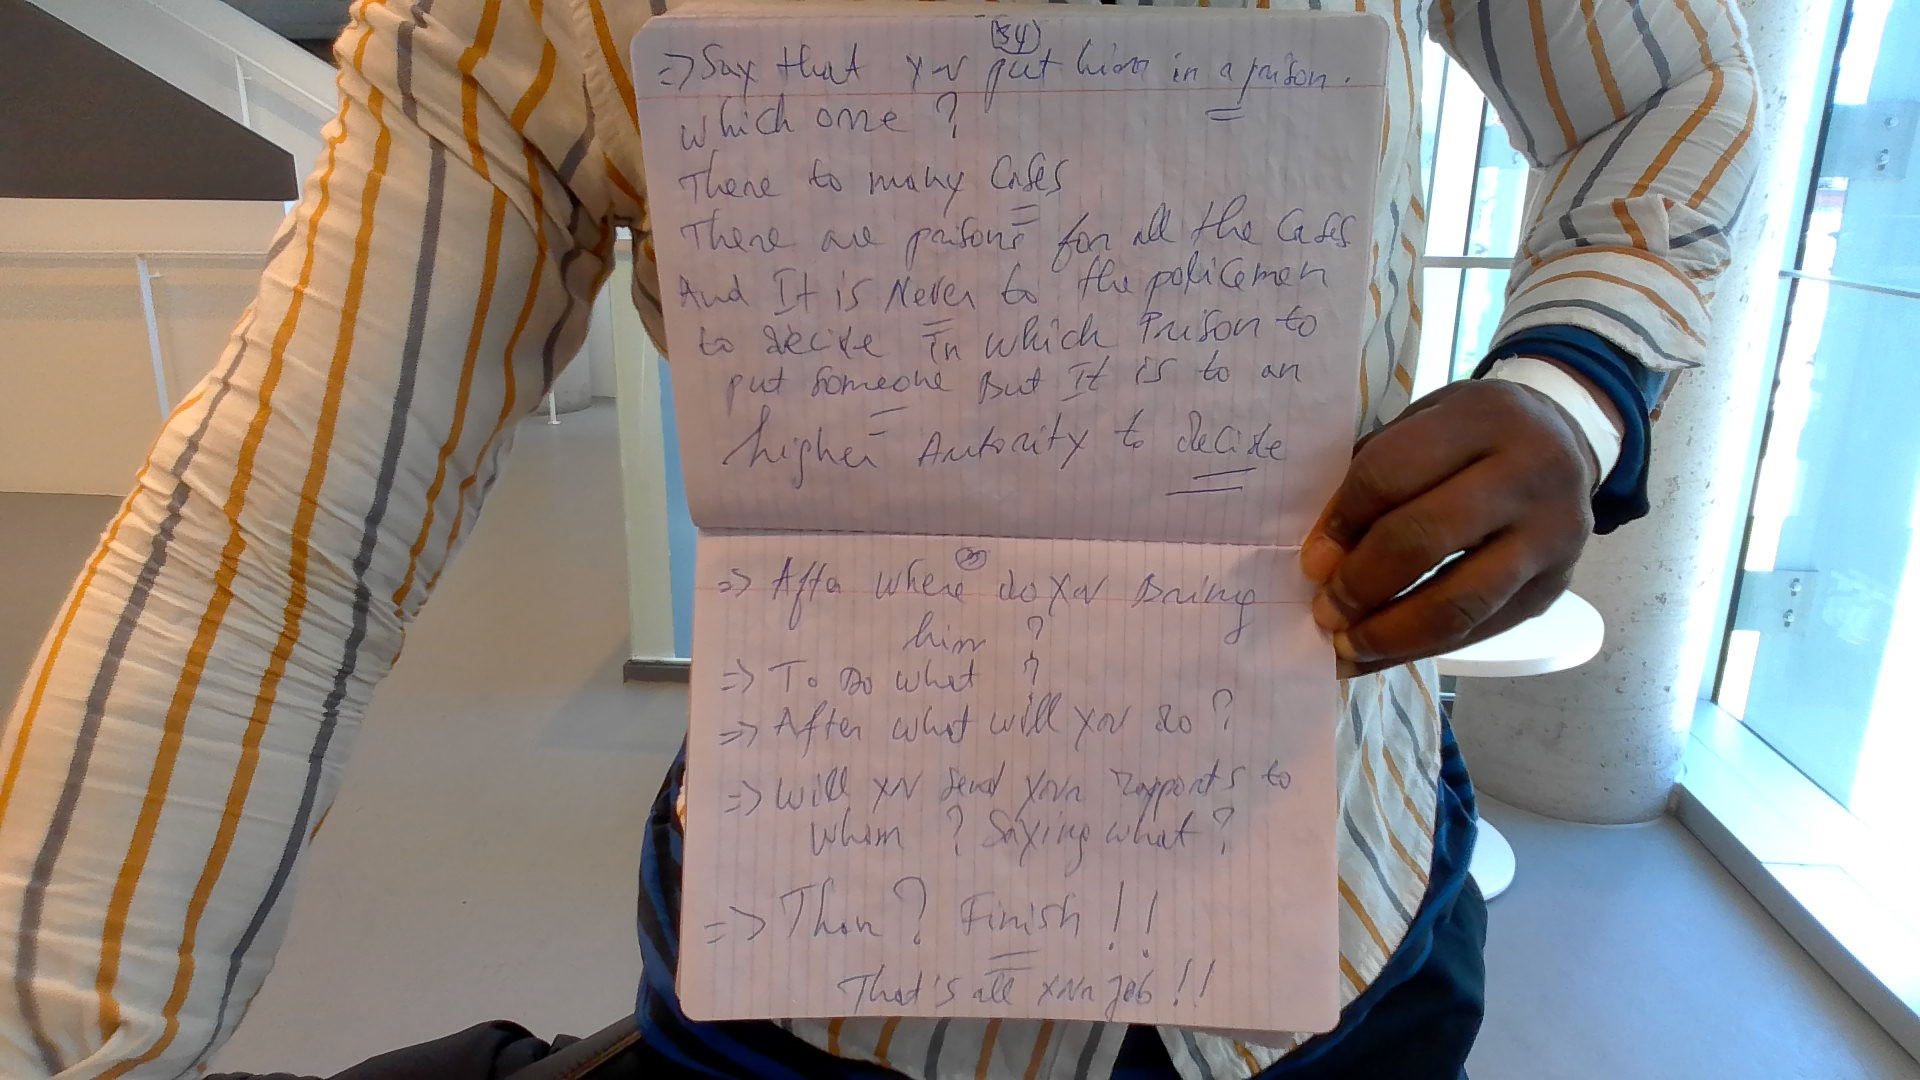 (34)
=> Say that you put him in a prison.
which one ?
There to many Cases
There are prisons for all the Cases
And It is Never to the policeman
to decide In which Prison to
put someone But It is to an
higher Autority to decide
=> After where do you Bring
him ?
=> To Do what ?
=> After what will you do ?
=> Will you send your rapports to
whom ? Saying what ?
=> Then ? Finish !!
That's all your job !!